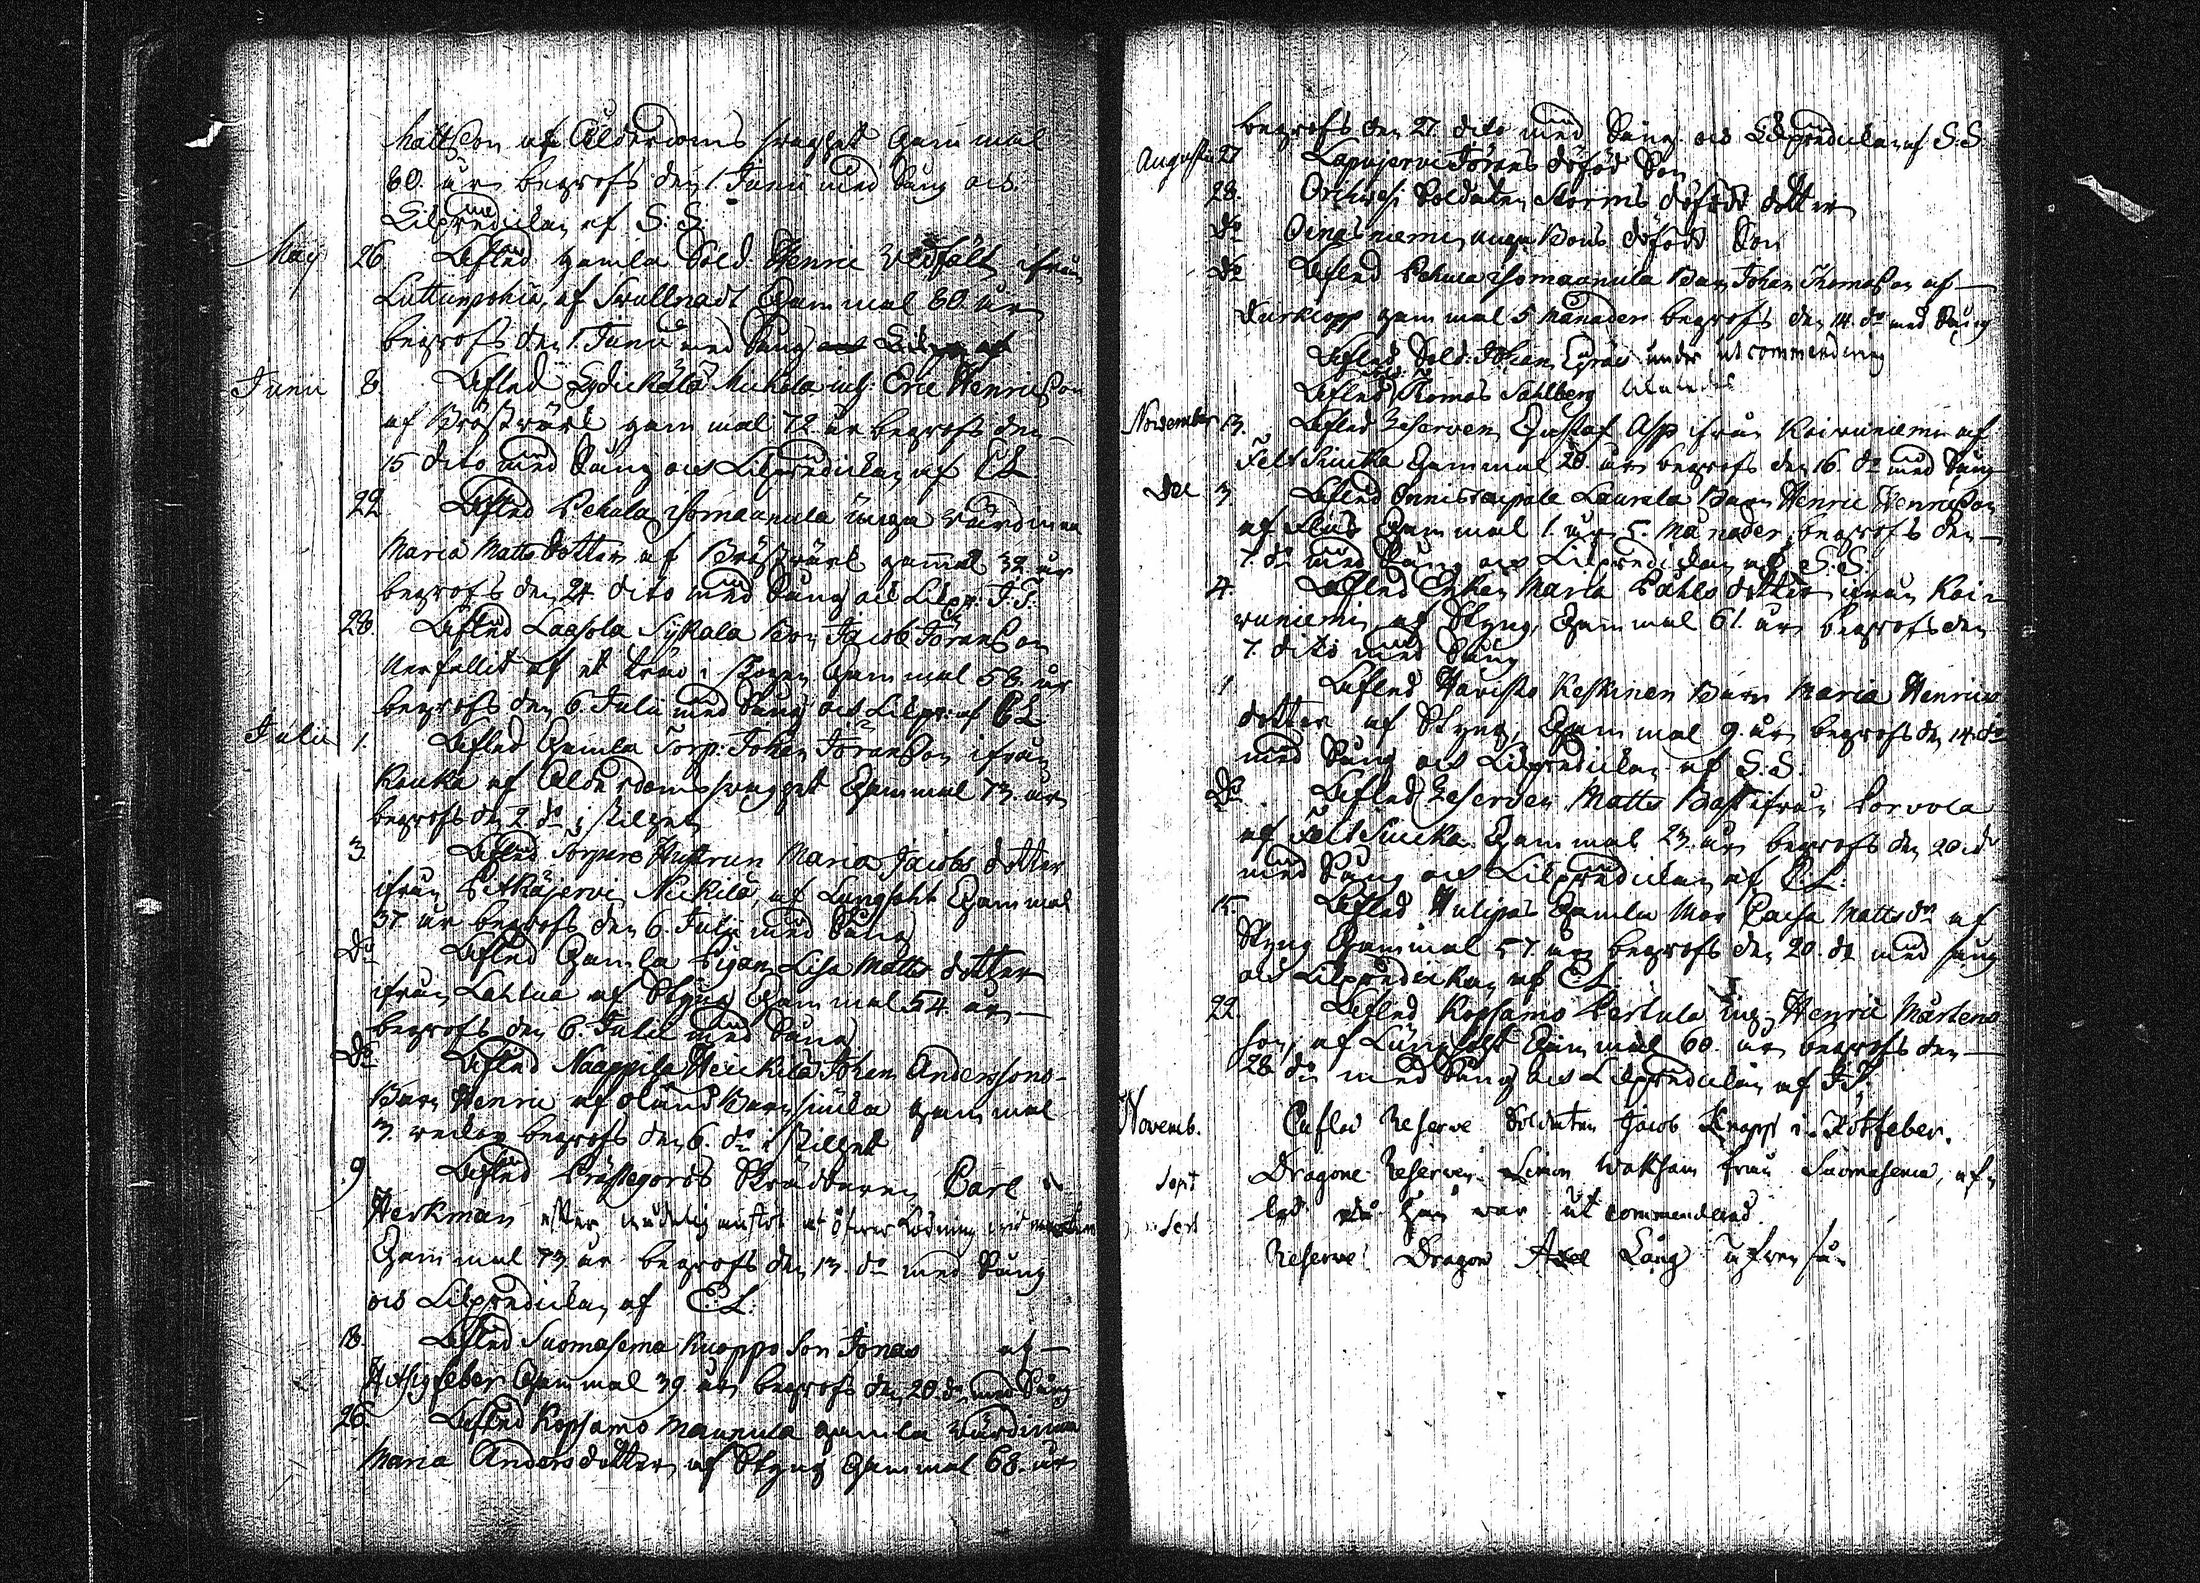 Mattsson af Ålderdoms swaghet Gammal
80. år, begrofs den 1. Junii med Sång ock
Likpredikan af S: S:
May 26. Afled gamla Sold. Henric Wedfält ifrån
Luttunpohia, af Swullnadt Gammal 60. år
begrofs den 1. Junii med Sång
Junii 8. Afled Lydickälä Mickola inh: Eric Henricsson
af Bröstwärk gammal 72. år begrofs den
15 dito med Sång ock Likpredikan af C L
22. Afled Pehula Isomaunula unga Wärdinna
Maria Matts dotter af Bröstwärk gammal 32. år
begrofs den 24. dito med Sång ock Likpr. J. T:
28. Afled Laasola Sykälä Bon Jacob Göransson
ner fallit af et träd i Skogen Gammal 58. år
begrofs den 6. Julii med Sång ock Likpr: af C L
Julii 1. Afled Gamla Torp: Johan Göransson ifrån
Kauka af Ålderdoms swaghet Gammal 73. år
begrofs den 2. do i stillhet
3. Afled Torpare Hustrun Maria Jacobs dotter
ifrån Pitkäjerwi Neikilä, af Lungsoht Gammal
37. år begrofs den 6. Julii med Sång
Do Afled Gamla Pigan Lisa Matts dotter
ifrån Lahtua af Styng Gammal 54. år
begrofs den 6. Julii med Sång
Do Afled Naappila Heickilä Johan Anderssons
Barn Henric af okänd Barnsiuka gammal
3. weckor begrofs den 6. do i stillhet
9. Afled Prästegårds Skräddaren Carl
Herkman efter
Gammal 73. år begrofs den 13. do med Sång
ock Likpredikan af C: L:
18. Afled Suomasema Knappo Son Jonas af
Hitsigfeber Gammal 39 år, begrofs den 20. do med Sång
26. Afled Kopsamo Maunula gamla Wärdinna
Maria Anders dotter af Styng Gammal 68. år
begrofs den 27. dito med Sång ock Likpredikan af S: S:
Augusti 27 Lapinjerwi Görans dödfödd Son
28. Orihwesi Soldaten Storms dödfödde dotter
Do Oinasniemi unga Bons dödfödde Son
Do Afled Pehula Isomaunula Barn Johan Thomasson af
Durklopp gammal 5 Månader begrofs den 14. do med Sång
Afled Sold: Johan under utcommendering
Afled Sold: Thomas Sahlberg likaledes
November 13. Afled Reserven Gustaf Asp ifrån Koiwuniemi af
Felt Siucka Gammal 20. år, begrofs den 16. do med Sång
Dec 3. Afled Onnistaipale Laurila Barn Henric Henricsson
af Gammal 1. år 5. Månader, begrofs den
7. do med Sång ock Likpredikan af S: S:
4. Afled Enkan Maria Påhls dotter ifrån Koi-
wuniemi, af Styng, Gammal 61. år, begrofs den
7. dito med Sång
Afled Hawisto Keskinen Barn Maria Henrics
dotter af Styng, Gammal 9. år, begrofs den 14. do
med Sång ock Likpredikan af S: S.
Do Afled Reserven Matts Bast ifrån Porvola
af Felt Siucka Gammal 23. år, begrofs den 20 do
med Sång ock Likpredikan af C: L:
15. Afled Hulipas Gamla Mor Caisa Matts dr af
Styng Gammal 57. år, begrofs den 20. do med sång
ock Likpredikan af C L.
22. Afled Kopsamo Pertula ing. Henric Mårtens
son, af Lungsoht Gammal 60. år, begrofs den
28. do med Sång ock Likpredikan af J T:
Novemb. Afled Reserve Soldaten Jacob Knapp i Rötfeber.
Sept Dragone Reserven Simon Wakksam från Suomasema, af-
led då han war ut commenderad.
Sept Reserve Dragon Axel Lång äfwen så.